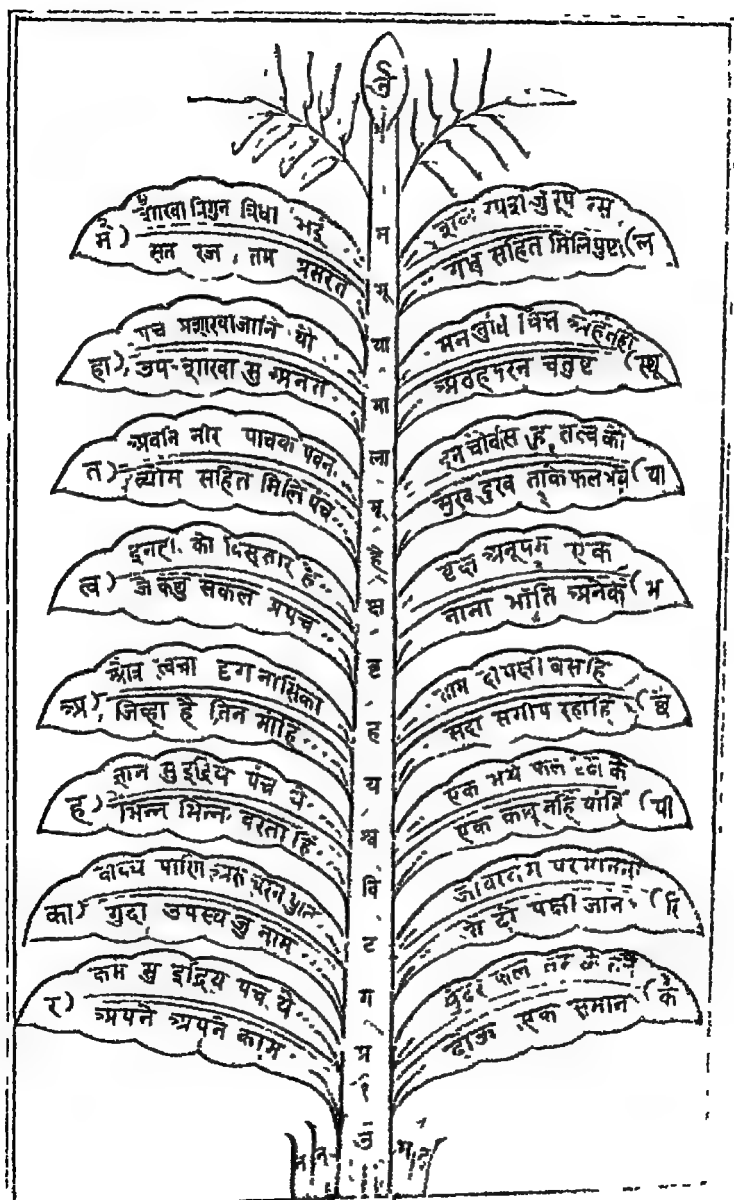 शाखा त्रिगुन त्रिधा भई
मे) सत रज तम प्रसरंत
पंच प्रशाखा जानि यौं
हा) उप शाखा सु अनंत
अवनि नीर पावक पवन
त) व्योम सहित मिलि पंच
इनही कौ विस्तार है
त्व) जे कछु सकल प्रपंच
श्रोत्र त्वचा दृग नासिका
अ) जिव्हा है तिन मांहि
ज्ञान सु इंद्रिय पंच ये
ह) भिन्न भिन्न वरतांहि
पाणि अरु चरन
का) गुदा उपस्थ जु नाम
कर्म सु इंद्रिय पंच ये
र) अपने अपने काम
म
मू
या
मा
ला
मू
क्ष
ह
य
वि
ट
ग
प्र
जु रूप रस
गंध सहित मिलि पुष्ट (ल
मन बुधि चित्त
चतुष्ट (स्थू
इन चौवीस हु तत्व कौ
सुख दुख ताके फल भये (या
वृक्ष अनूपम एक
नाना भांति अनेक (भ
तामें दो पक्षी बसहिं
सदा समीप रहांहि (वृ
एक भषे फल वृक्ष के
एक कछू नहिं षांहि (पी
जीवातम परमातमा
ये दो पक्षी जान (रि
सुंदर फल
दोऊ एक समान (के